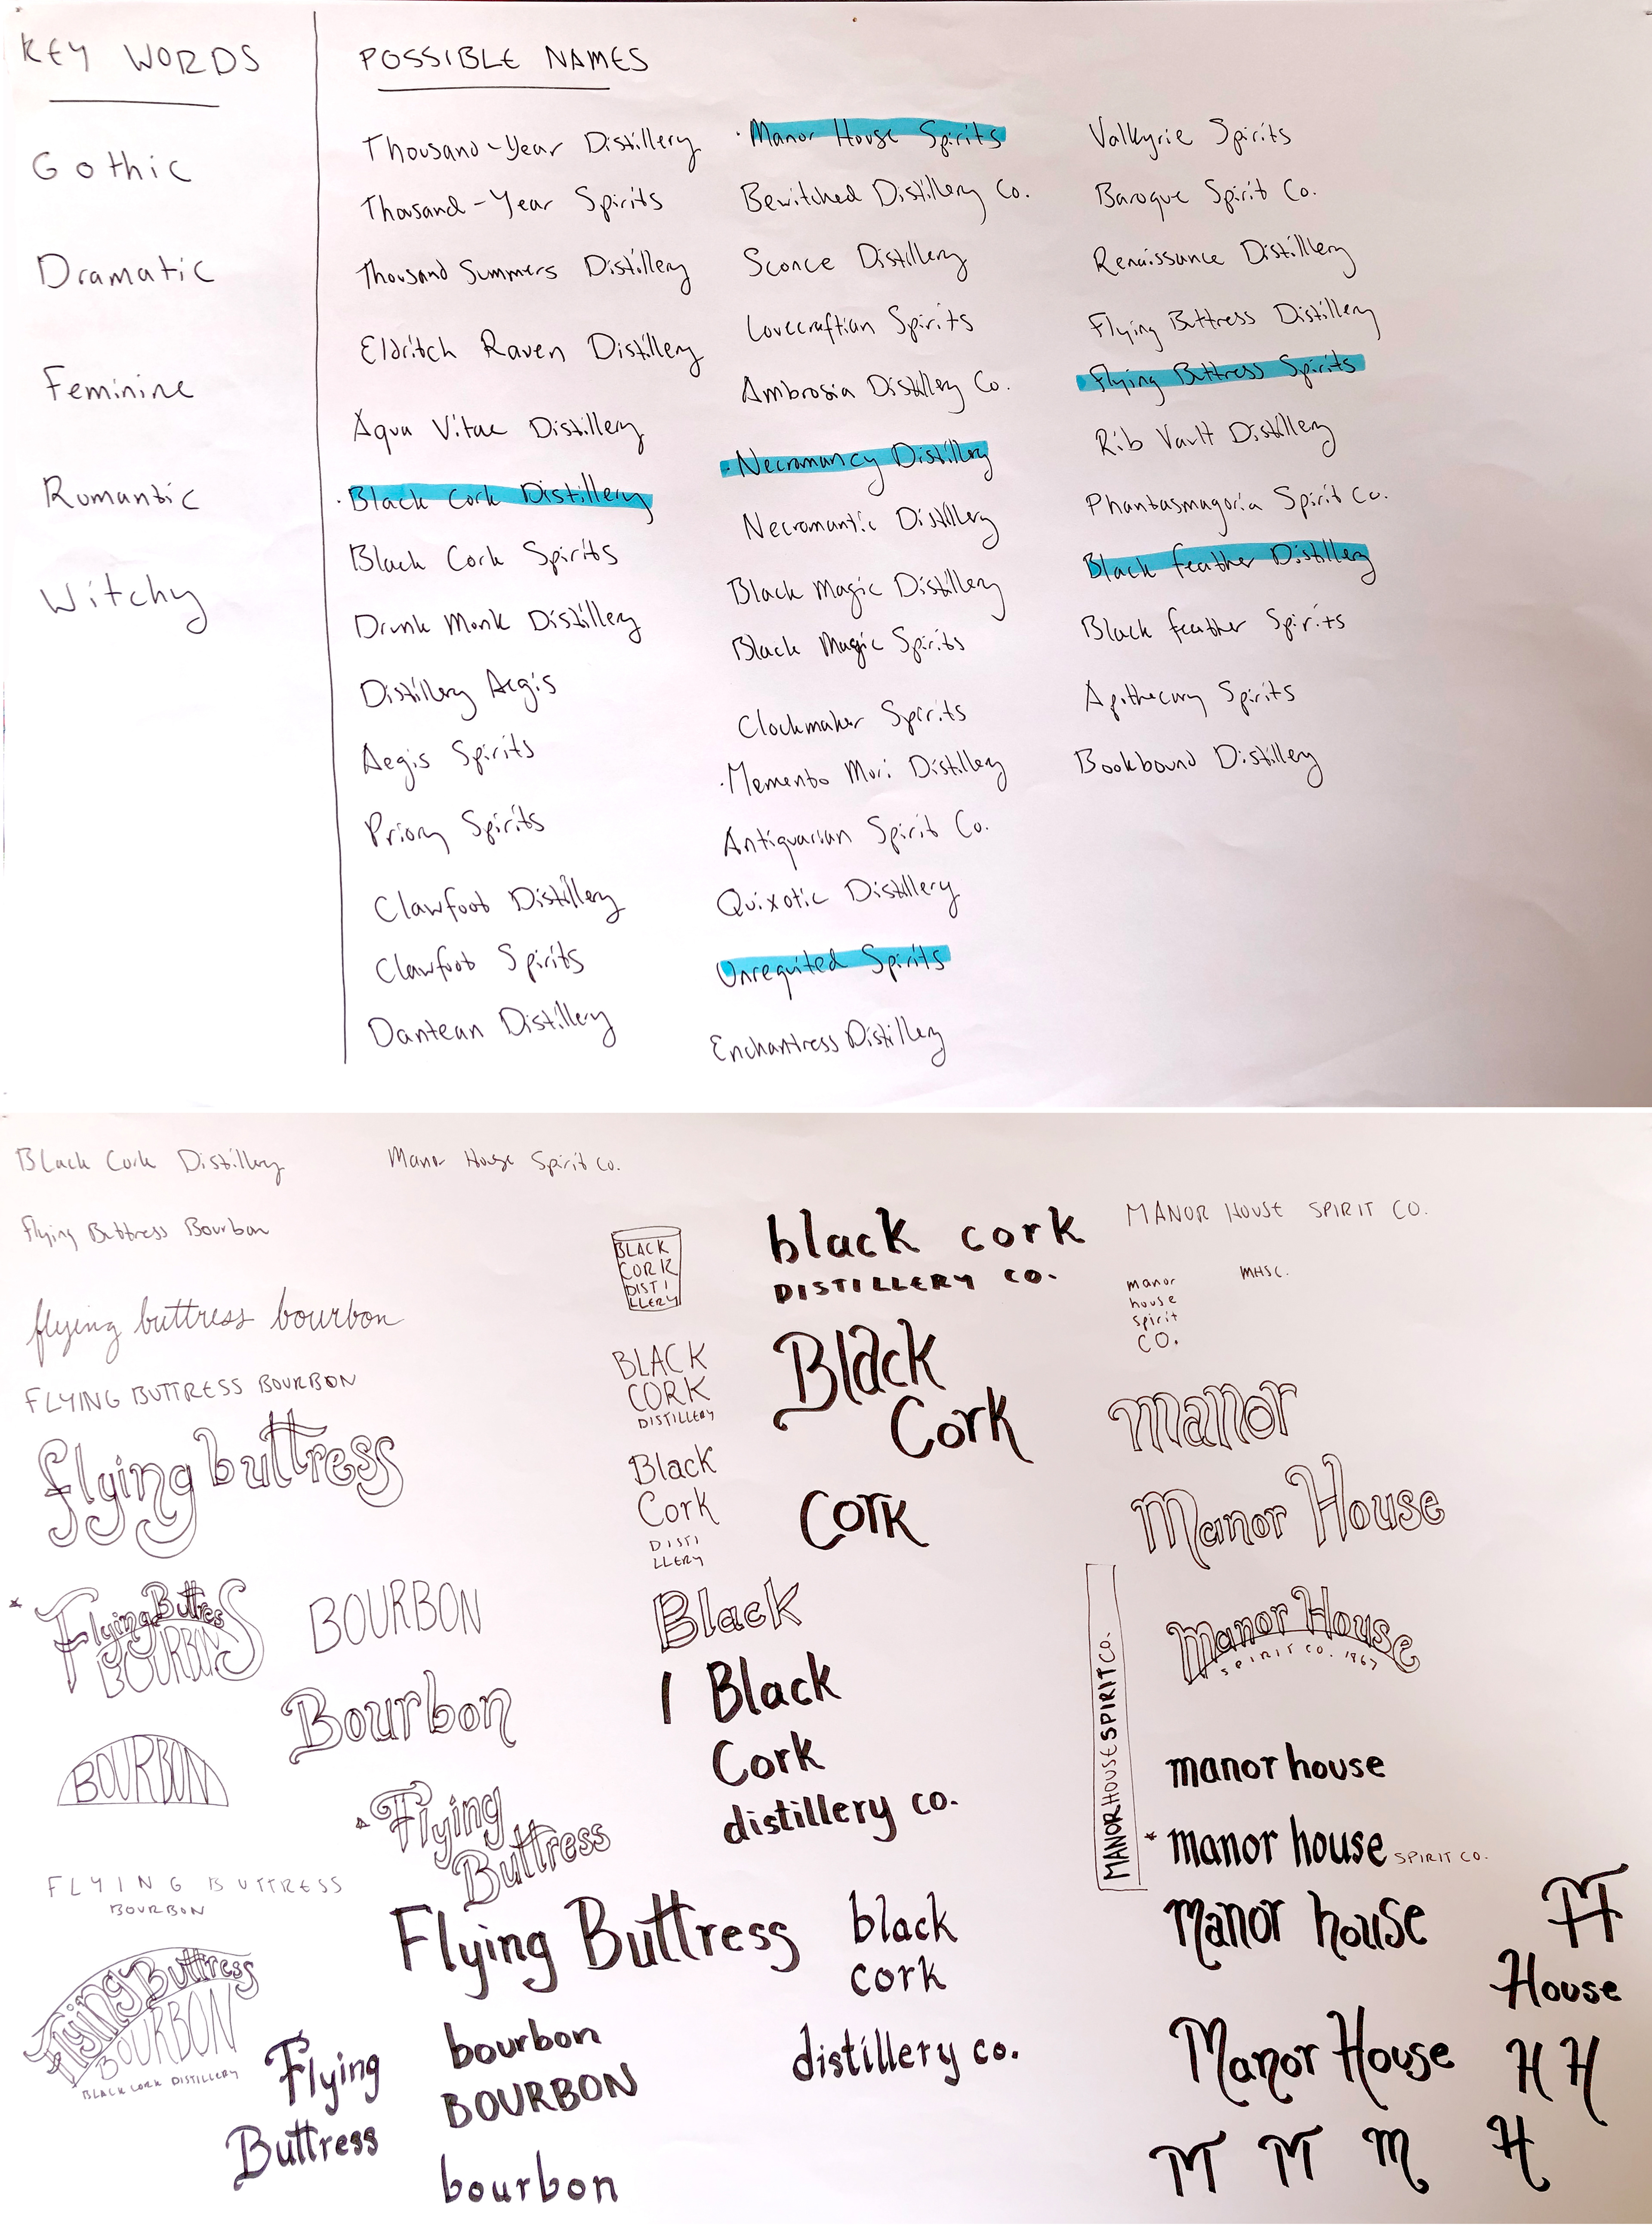 KEY WORDS
Gothic
Dramatic
Feminine
Romantic
Witchy
POSSIBLE NAMES
Thousand-Year Distillery
Thousand-Year Spirits
Thousand Summers Distillery
Eldritch Raven Distillery
Aqua Vitae Distillery
· Black Cork Distillery
Black Cork Spirits
Drunk Monk Distillery
Distillery Aegis
Aegis Spirits
Priory Spirits
Clawfoot Distillery
Clawfoot Spirits
Dantean Distillery
· Manor House Spirits
Bewitched Distillery Co.
Sconce Distillery
Lovecraftian Spirits
Ambrosia Distillery Co.
· Necromancy Distillery
Necromantic Distillery
Black Magic Distillery
Black Magic Spirits
Clockmaker Spirits
· Memento Mori Distillery
Antiquarian Spirit Co.
Quixotic Distillery
Unrequited Spirits
Enchantress Distillery
Valkyrie Spirits
Baroque Spirit Co.
Renaissance Distillery
Flying Buttress Distillery
· Flying Buttress Spirits
Rib Vault Distillery
Phantasmagoria Spirit Co.
Black feather Distillery
Black feather Spirits
Apothecary Spirits
Bookbound Distillery
Black Cork Distillery
Manor House Spirit Co.
Flying Buttress Bourbon
flying buttress bourbon
FLYING BUTTRESS BOURBON
flying buttress
Flying Buttress
BOURBON
BOURBON
Bourbon
BOURBON
Flying
Buttress
FLYING BUTTRESS
BOURBON
Flying Buttress
Flying Buttress
BOURBON
BLACK CORK DISTILLERY
Flying
Buttress
bourbon
BOURBON
bourbon
BLACK
CORK
DISTI
LLERY
BLACK
CORK
DISTILLERY
Black
Cork
DISTI
LLERY
Black
Black
Cork
distillery co.
black cork
DISTILLERY CO.
Black
Cork
Cork
black
cork
distillery co.
MANOR HOUSE SPIRIT CO.
manor
house
spirit
CO.
MHSC.
manor
Manor House
Manor House
SPIRIT CO. 1967
MANORHOUSESPIRITCO.
manor house
manor house SPIRIT CO.
Manor house
House
Manor House
H H
M M M H